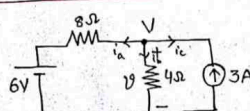 8Ω V
i_a i_c
i_b
6V v 4Ω 3A
−